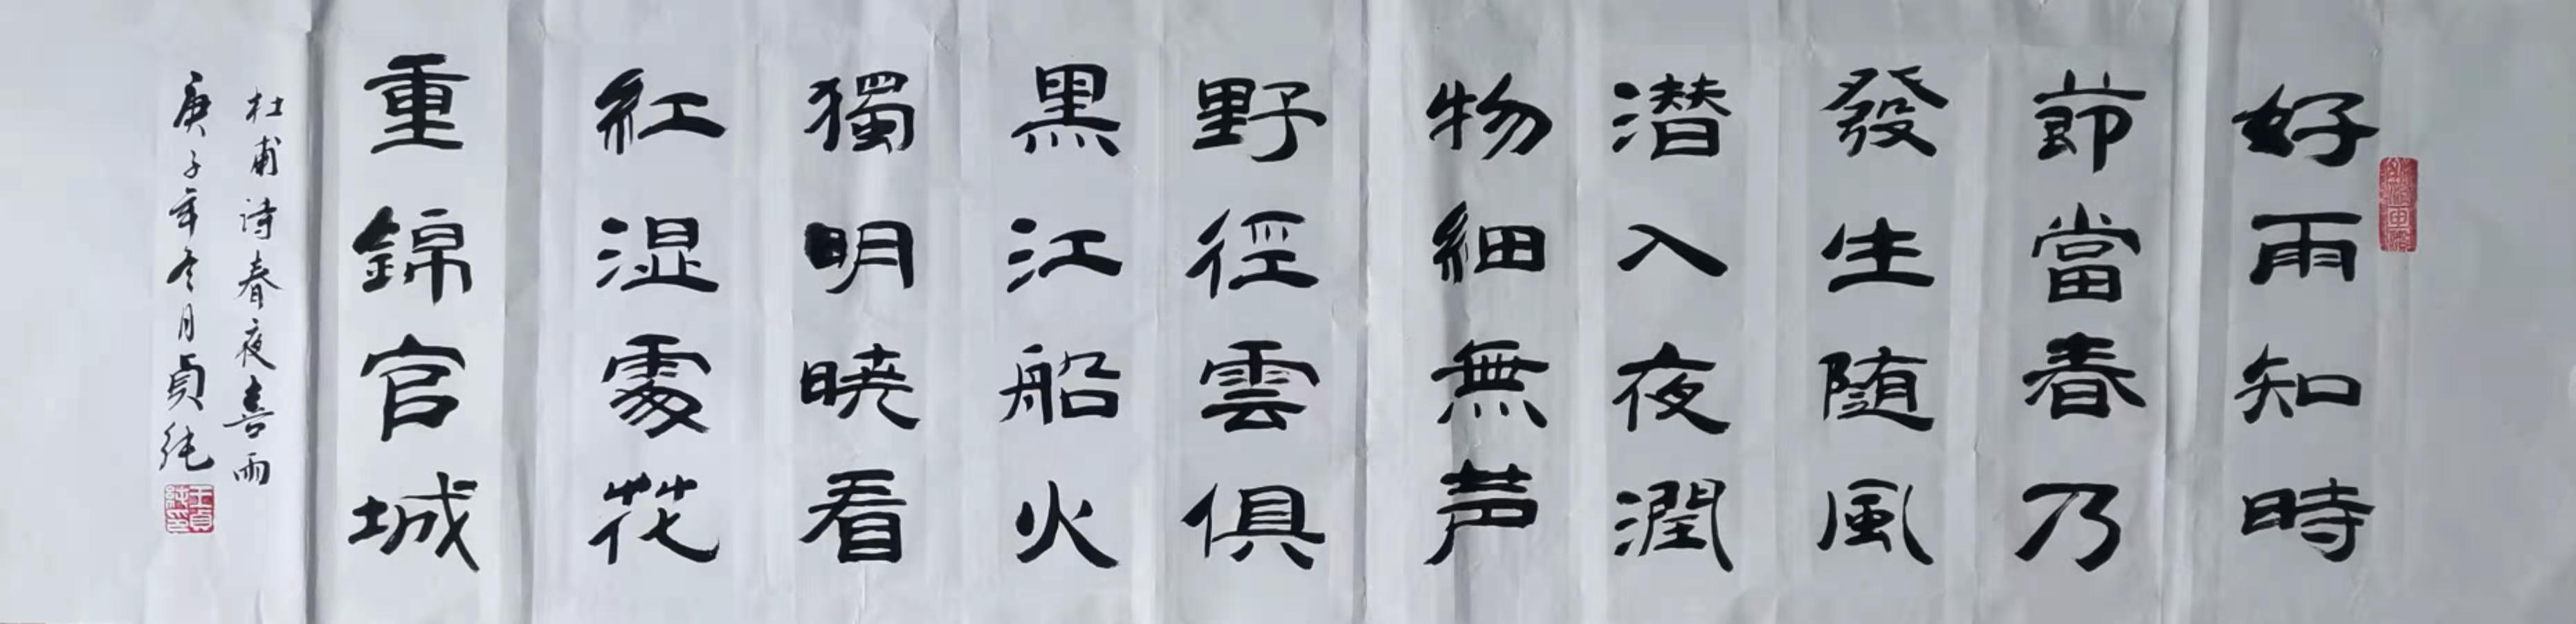 好雨知時
節當春乃
發生随風
潜入夜潤
物細無声
野徑雲俱
黑江船火
獨明暁看
紅湿處花
重錦官城
杜甫诗春夜喜雨
庚子年冬月貞純
王貞純印